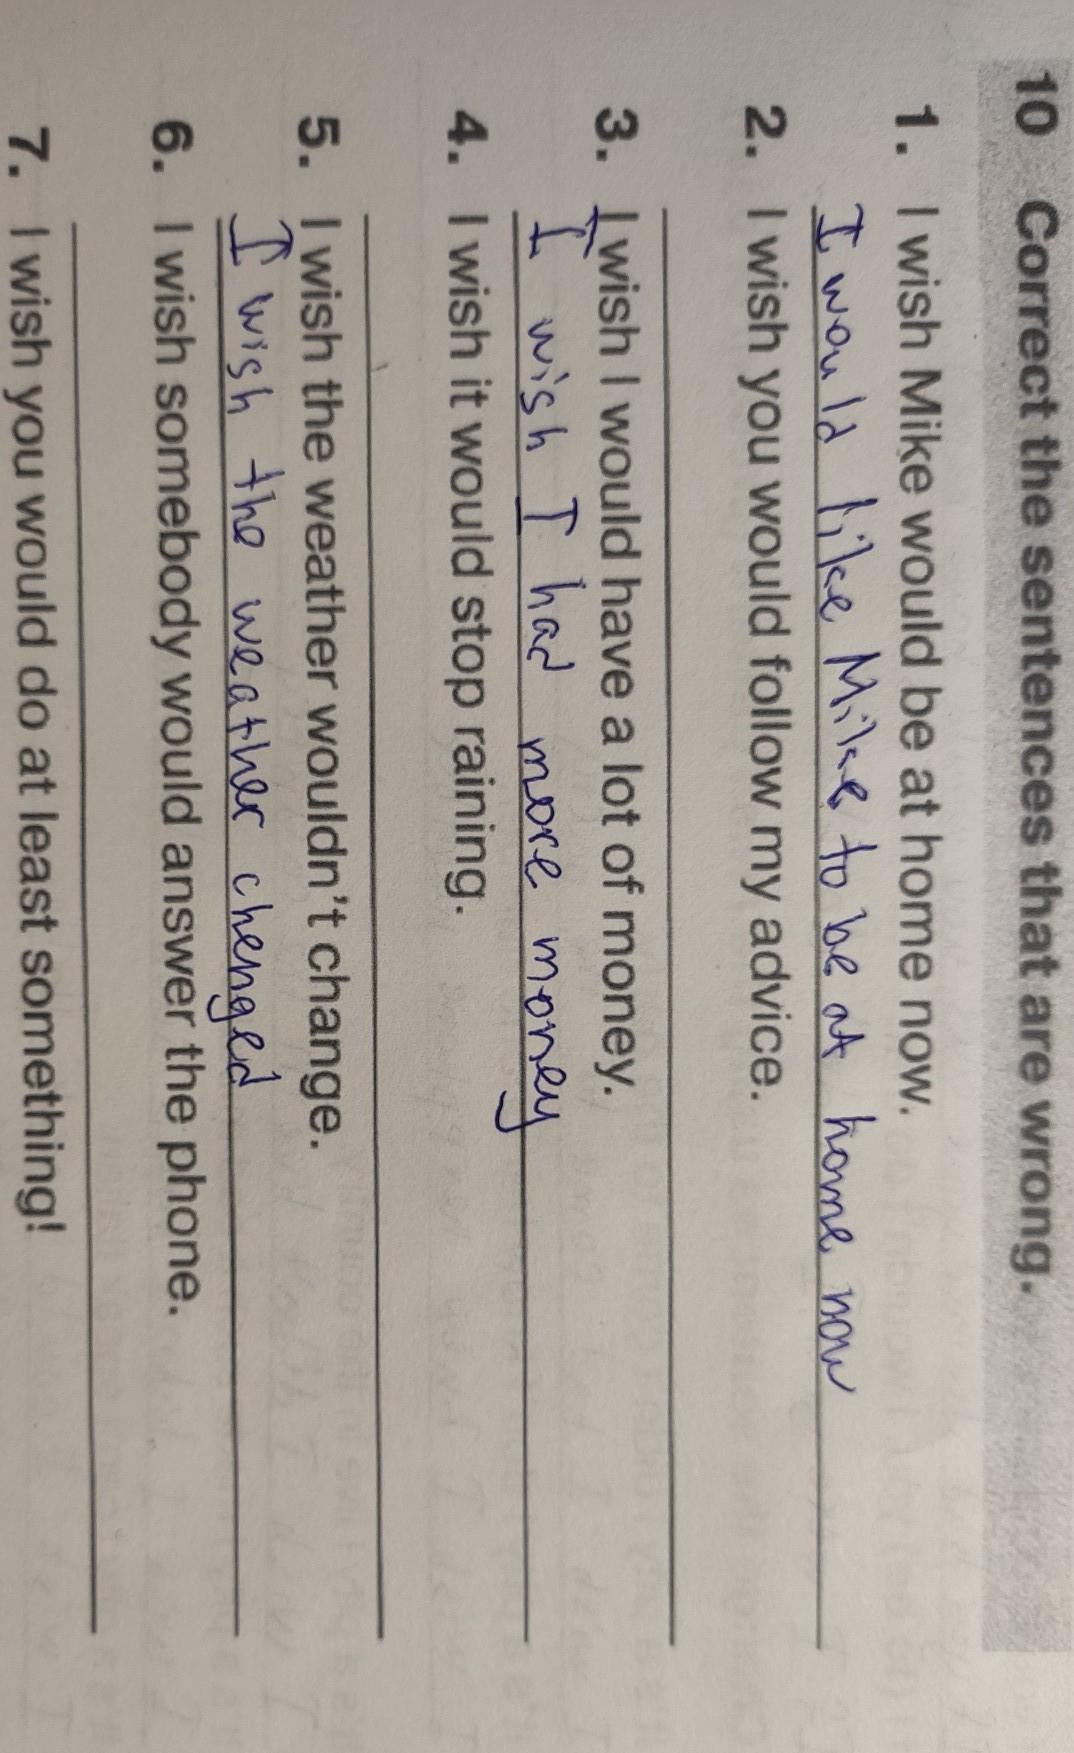 10 Correct the sentences that are wrong.
1. I wish Mike would be at home now.
I would like Mike to be at home now
2. I wish you would follow my advice.
3. I wish I would have a lot of money.
I wish I had more money
4. I wish it would stop raining.
5. I wish the weather wouldn't change.
I wish the weather chenged
6. I wish somebody would answer the phone.
7. I wish you would do at least something!